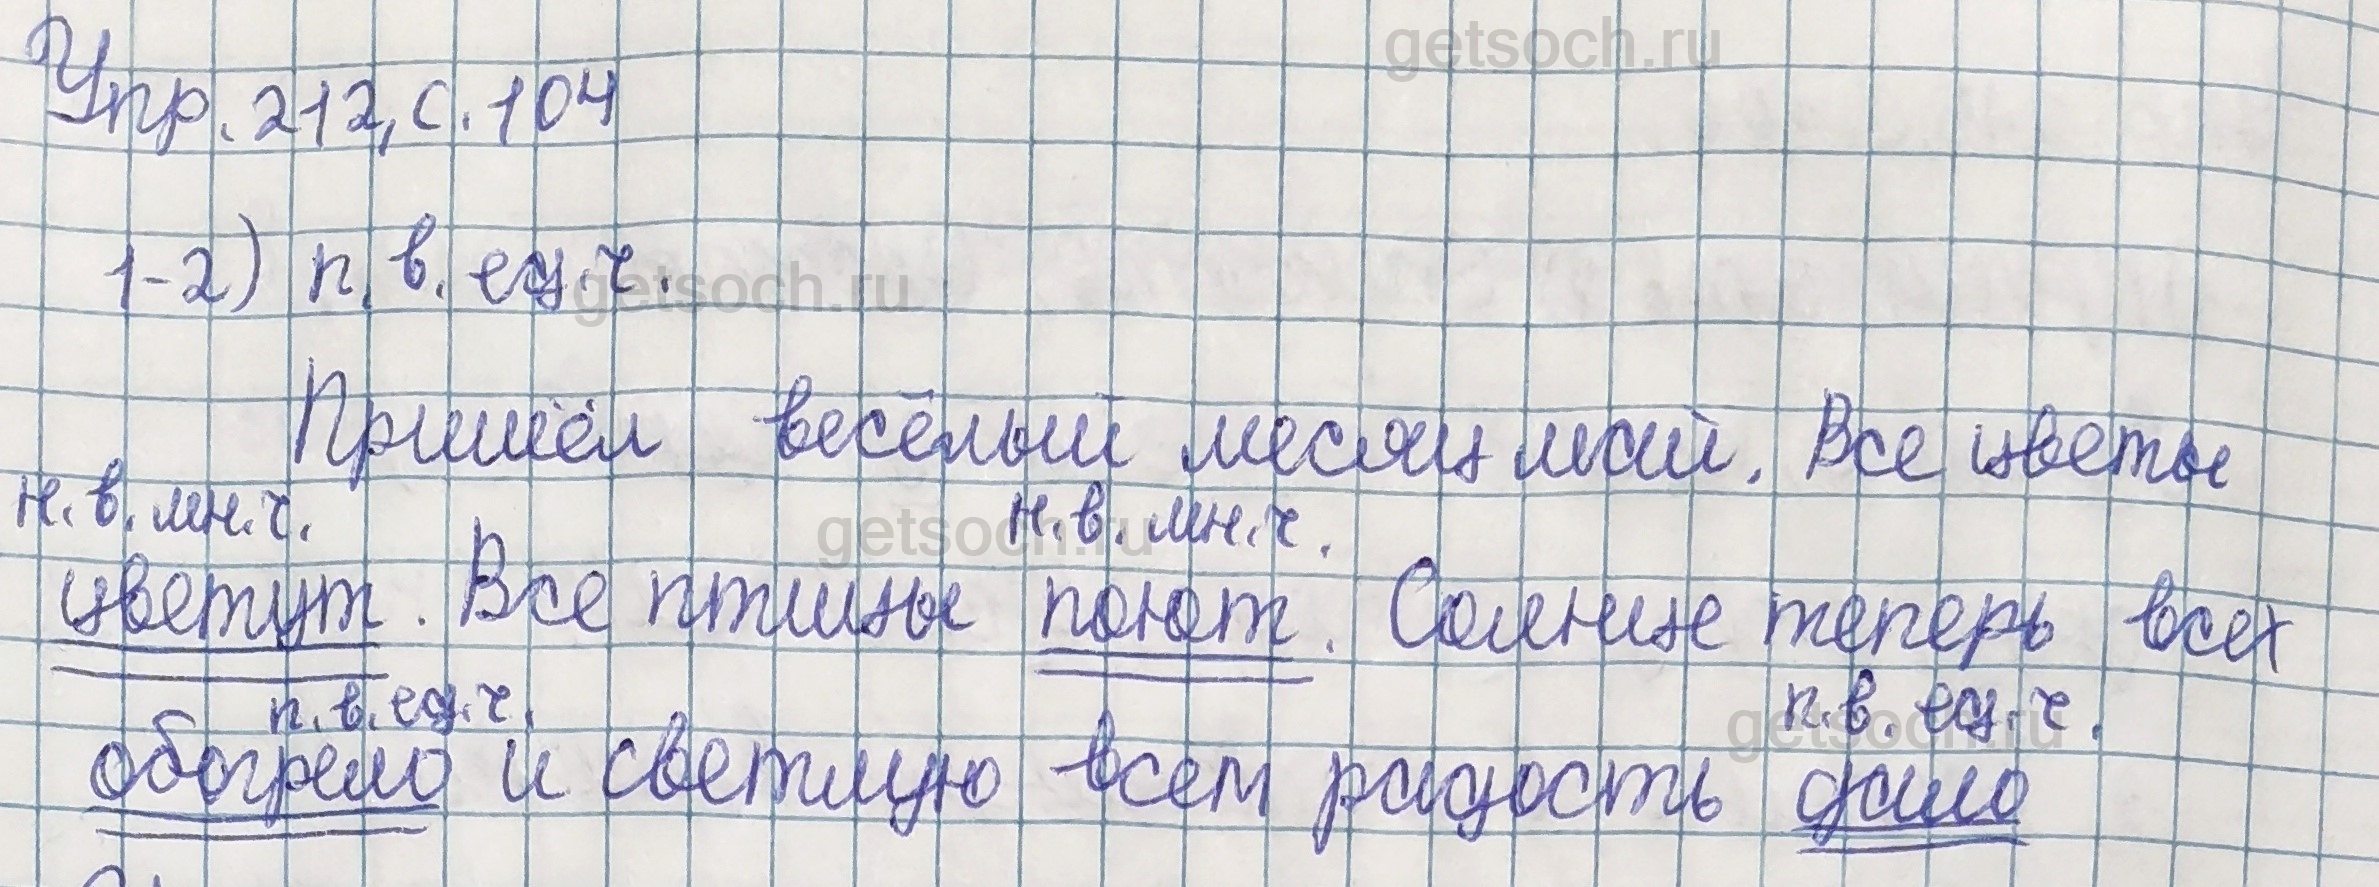 getsoch.ru
Упр. 212, с. 104
1-2) п. в. ед.ч.
getsoch.ru
Пришёл весёлый месяц май. Все цветы
н.в. мн.ч. н.в. мн.ч.
getsoch.ru
цветут. Все птицы поют. Солнце теперь всех
п.в. ед.ч. п.в. ед.ч.
getsoch.ru
обогрело и светлую всем радость дало